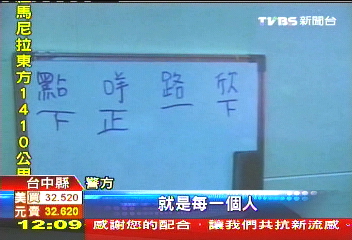 TVBS 新聞台
馬尼拉東方1410公里
點 路 欣
下 正 一 下
台中縣 警方
就是每一個人
美元 買 32.520
賣 32.620
12:09 感謝您的配合，讓我們共抗新流感。